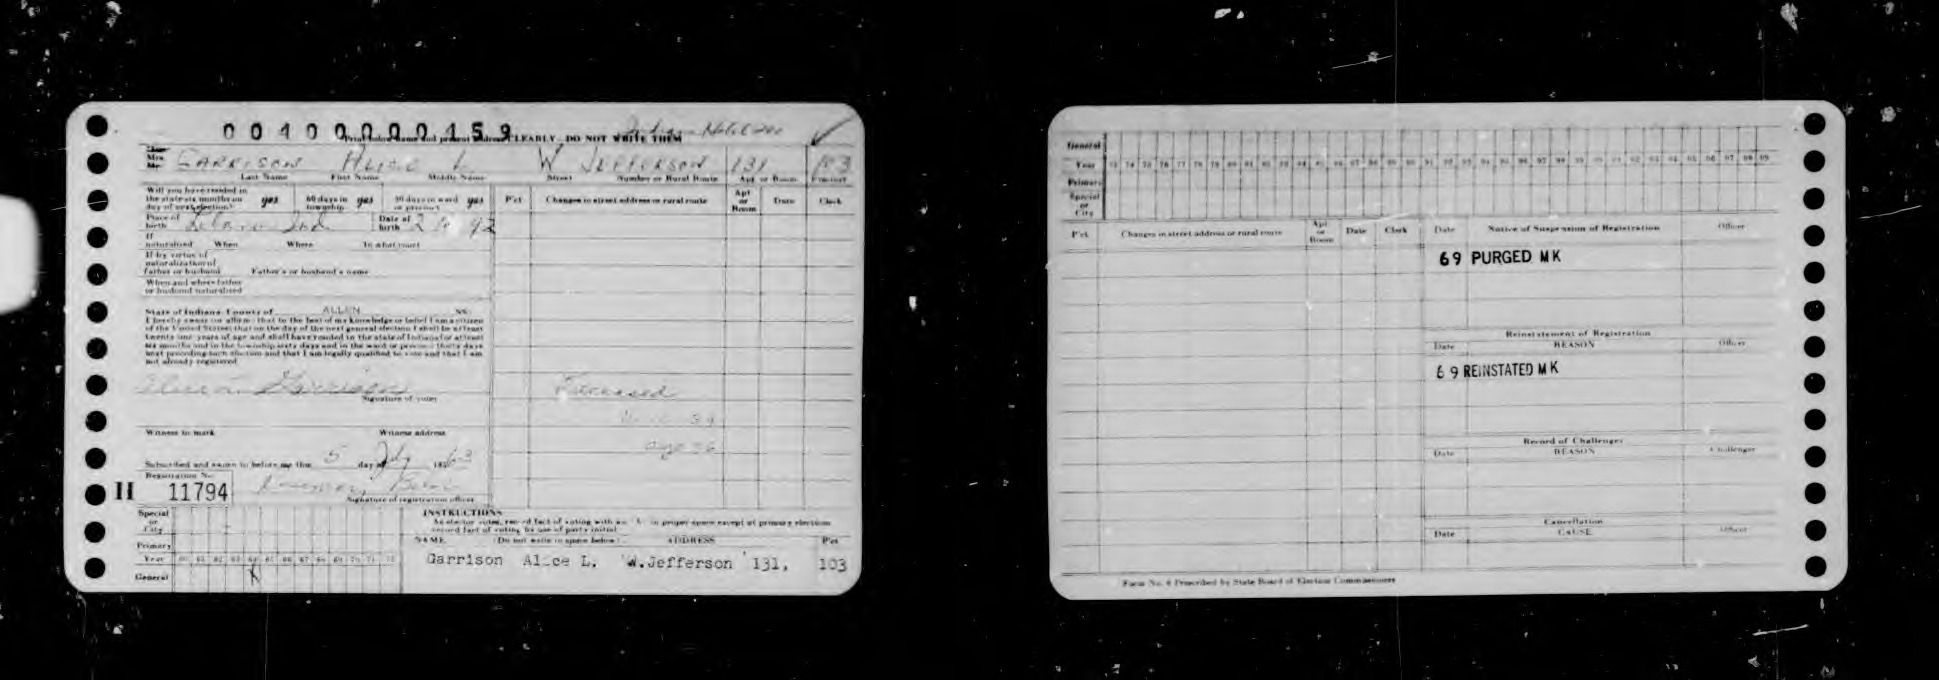 00400000159
CLEARLY. DO NOT WRITE THEM
Mrs. GARRISON ALICE L W JEFFERSON 131 103
Last Name First Name Middle Name Street Number or Rural Route Apt or Room Precinct
Will you have resided in
the state six months on yes 60 days in yes 30 days in ward yes
day of next election? township or precinct
P'ct Changes in street address or rural route Apt or Room Date Clerk
Place of birth Ind Date of birth
If
naturalized When Where In what court
If by virtue of
naturalization of
father or husband Father's or husband's name
When and where father
or husband naturalized
State of Indiana, County of ALLEN SS:
I hereby swear (or affirm) that to the best of my knowledge or belief I am a citizen
of the United States; that on the day of the next general election I shall be at least
twenty one years of age and shall have resided in the state of Indiana for at least
six months and in the township sixty days and in the ward or precinct thirty days
next preceding such election and that I am legally qualified to vote and that I am
not already registered
Garrison
Signature of voter
Deceased
Witness to mark Witness address
Subscribed and sworn to before me this 5 day of July 1963
Registration No.
H 11794
Signature of registration officer
INSTRUCTIONS
Special
or
City
Primary
Year 60 61 62 63 64 65 66 67 68 69 70 71 72
General X
NAME (Do not write in space below) ADDRESS P'ct
Garrison Alice L. W.Jefferson 131, 103
General
Year 73 74 75 76 77 78 79 80 81 82 83 84 85 86 87 88 89 90 91 92 93 94 95 96 97 98 99
Primary
Special
or
City
P'ct Changes in street address or rural route Apt or Room Date Clerk
Date Notice of Suspension of Registration Officer
69 PURGED MK
Reinstatement of Registration
Date REASON Officer
69 REINSTATED MK
Record of Challenges
Date REASON Challenger
Cancellation
Date CAUSE Officer
Form No. 6 Prescribed by State Board of Election Commissioners